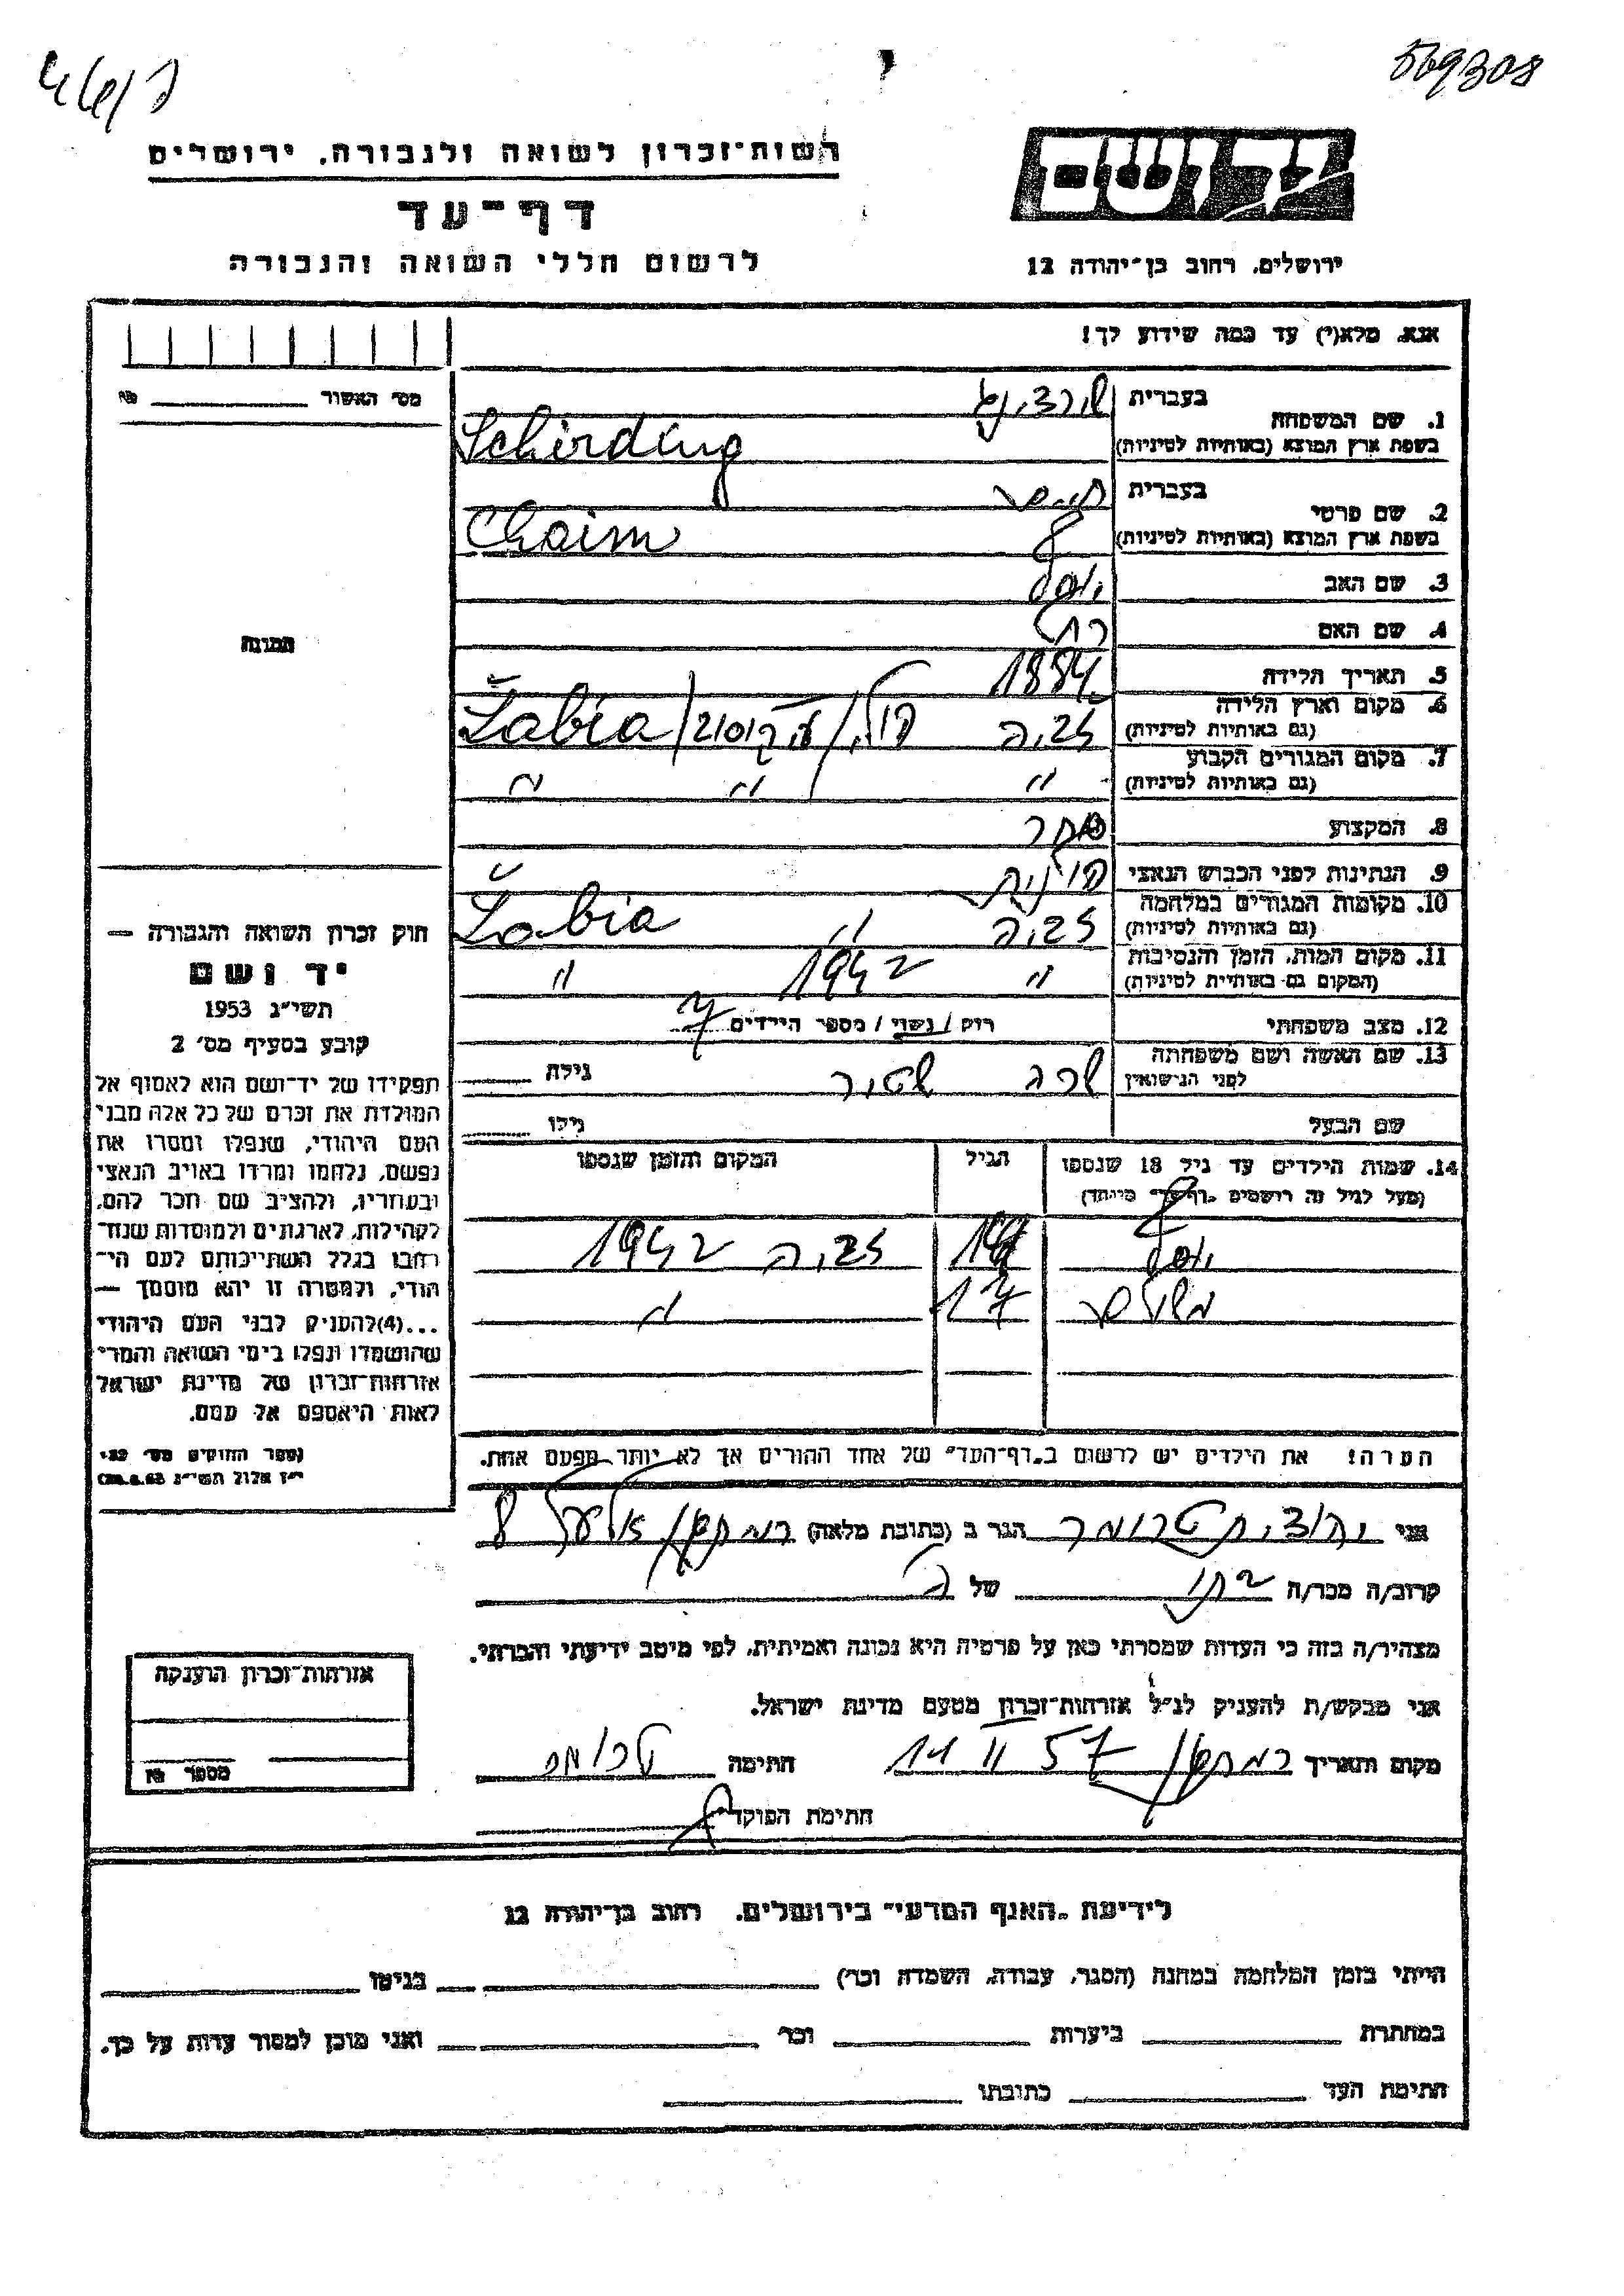 569308
רשות־זכרון לשואה ולגבורה, ירושלים
דף־עד
לרשום חללי השואה והגבורה
יד ושם
ירושלים, רחוב בן־יהודה 12
אנא, מלא(י) עד כמה שידוע לך!
מס׳ האשור № 
1. שם המשפחה בעברית שירדינג
בשפת ארץ המוצא (באותיות לטיניות) Schirding
2. שם פרטי בעברית חיים
בשפת ארץ המוצא (באותיות לטיניות) Chaim
3. שם האב יוסף
4. שם האם רחל
5. תאריך הלידה 1884
6. מקום וארץ הלידה זביה
(גם באותיות לטיניות) Żabia
7. מקום המגורים הקבוע " " "
(גם באותיות לטיניות)
8. המקצוע סוחר
9. הנתינות לפני הכבוש הנאצי פולנית
10. מקומות המגורים במלחמה זביה " Żabia
(גם באותיות לטיניות)
11. מקום המות, הזמן והנסיבות " 1942 "
(המקום גם באותיות לטיניות)
12. מצב משפחתי רווק / נשוי / מספר הילדים 7
13. שם האשה ושם משפחתה שרה גילה
לפני הנישואין
שם הבעל גילו
14. שמות הילדים עד גיל 18 שנספו הגיל המקום והזמן שנספו
(מעל לגיל זה רושמים „דף־עד״ מיוחד)
יוסף זביה 1942
17 "
הערה! את הילדים יש לרשום ב„דף־העד״ של אחד ההורים אך לא יותר מפעם אחת.
תמונה
חוק זכרון השואה והגבורה —
יד ושם
תשי״ג 1953
קובע בסעיף מס׳ 2
תפקידו של יד־ושם הוא לאסוף אל
המולדת את זכרם של כל אלה מבני
העם היהודי, שנפלו ומסרו את
נפשם, נלחמו ומרדו באויב הנאצי
ובעוזריו, ולהציב שם וזכר להם,
לקהילות, לארגונים ולמוסדות שנח־
רבו בגלל השתייכותם לעם הי־
הודי, ולמטרה זו יהא מוסמך —
...(4)להעניק לבני העם היהודי
שהושמדו ונפלו בימי השואה והמרי
אזרחות־זכרון של מדינת ישראל
לאות היאספם אל עמם.
(ספר החוקים מס׳ 132
י״ז אלול תשי״ג 28.8.53)
אני יהודית שטרומר הגר ב (כתובת מלאה)
קרוב/ה מכר/ה בתו של
מצהיר/ה בזה כי העדות שמסרתי כאן על פרטיה היא נכונה ואמיתית, לפי מיטב ידיעתי והכרתי.
אני מבקש/ת להעניק לנ״ל אזרחות־זכרון מטעם מדינת ישראל.
מקום ותאריך 11 II 57 חתימה
חתימת הפוקד
אזרחות־זכרון הוענקה
מספר №
לידיעת „האגף המדעי״ בירושלים, רחוב בן־יהודה 12
הייתי בזמן המלחמה במחנה (הסגר, עבודה, השמדה וכר) בגיטו
במחתרת ביערות וכר ואני מוכן למסור עדות על כך.
חתימת העד כתובתו